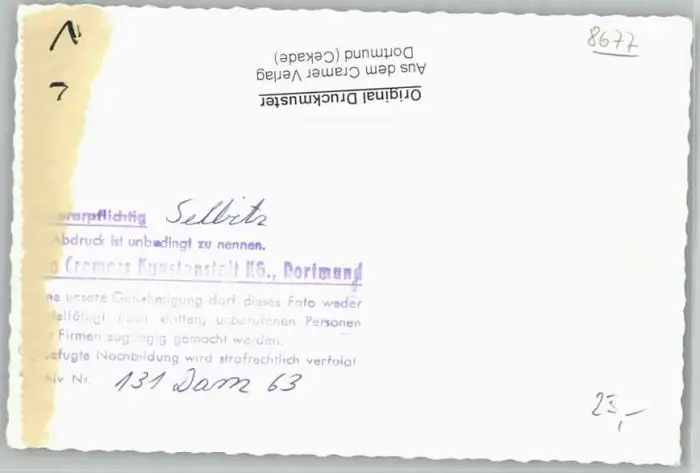 8677
Original Druckmuster
Aus dem Cramer Verlag
Dortmund (Cekade)
Selbitz
ist unbedingt zu nennen.
Cramers Kunstanstalt KG., Dortmund
unsere Genehmigung darf dieses Foto weder
dritten, unberufenen Personen
Firmen zugängig gemacht werden.
Nachbildung wird strafrechtlich verfolgt
Nr. 131 Dam 63
25,-